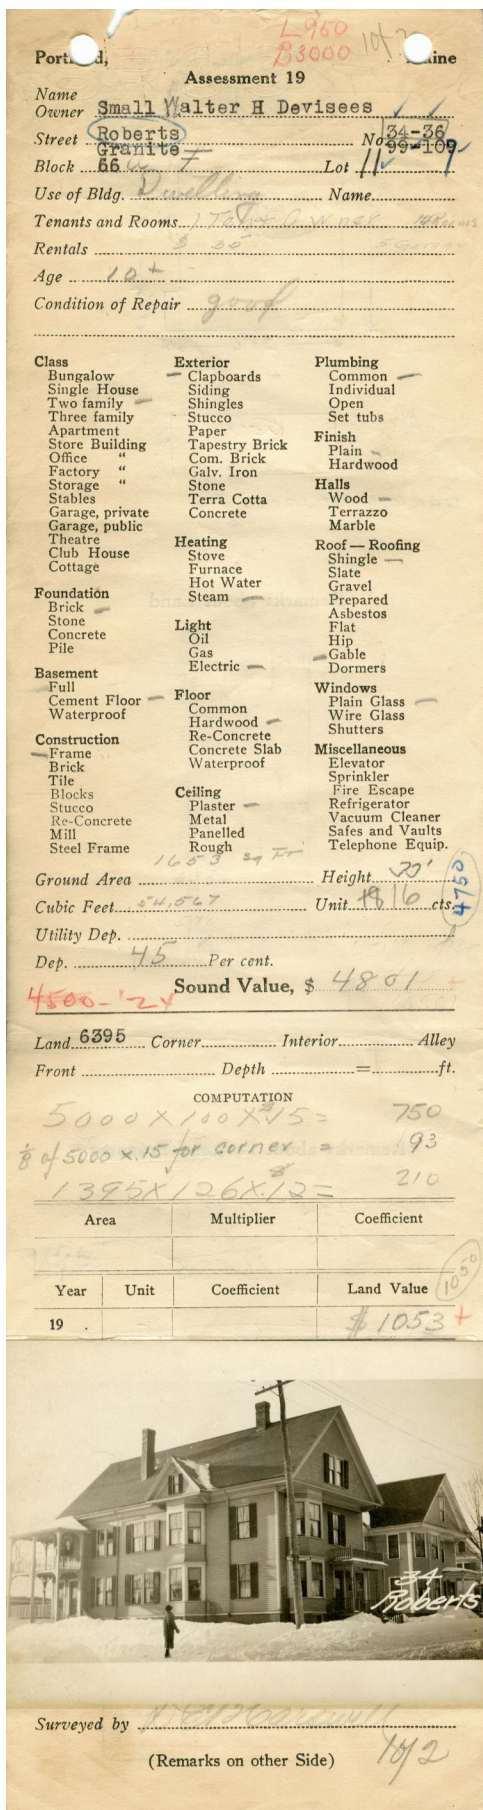 L950
B3000 1 of 2
Portland, Maine
Assessment 19
Name
Owner Small Walter H Devisees
Street Roberts No. 34-36
Granite 99-109
Block 66 F Lot 11 9
Use of Bldg. Dwelling Name
Tenants and Rooms 1 Ten + Owner 14 Rooms
Rentals $ 35
Age 10+
Condition of Repair good
Class
Bungalow
Single House
Two family
Three family
Apartment
Store Building
Office "
Factory "
Storage "
Stables
Garage, private
Garage, public
Theatre
Club House
Cottage
Foundation
Brick
Stone
Concrete
Pile
Basement
Full
Cement Floor
Waterproof
Construction
Frame
Brick
Tile
Blocks
Stucco
Re-Concrete
Mill
Steel Frame
Exterior
Clapboards
Siding
Shingles
Stucco
Paper
Tapestry Brick
Com. Brick
Galv. Iron
Stone
Terra Cotta
Concrete
Heating
Stove
Furnace
Hot Water
Steam
Light
Oil
Gas
Electric
Floor
Common
Hardwood
Re-Concrete
Concrete Slab
Waterproof
Ceiling
Plaster
Metal
Panelled
Rough
Plumbing
Common
Individual
Open
Set tubs
Finish
Plain
Hardwood
Halls
Wood
Terrazzo
Marble
Roof — Roofing
Shingle
Slate
Gravel
Prepared
Asbestos
Flat
Hip
Gable
Dormers
Windows
Plain Glass
Wire Glass
Shutters
Miscellaneous
Elevator
Sprinkler
Fire Escape
Refrigerator
Vacuum Cleaner
Safes and Vaults
Telephone Equip.
1653 sq Ft
Ground Area Height
Cubic Feet 54,567 Unit 16 cts.
4750
Utility Dep.
Dep. 45 Per cent.
Sound Value, $ 4801 +
4500-'24
Land 6395 Corner Interior Alley
Front Depth = ft.
COMPUTATION
5000 X 100 X .15 = 750
1/8 of 5000 x .15 for corner = 93
1395 X 126 X .12 = 210
Area Multiplier Coefficient
1050
Year Unit Coefficient Land Value
19 . $ 1053 +
34
Roberts
Surveyed by
(Remarks on other Side) 1 of 2